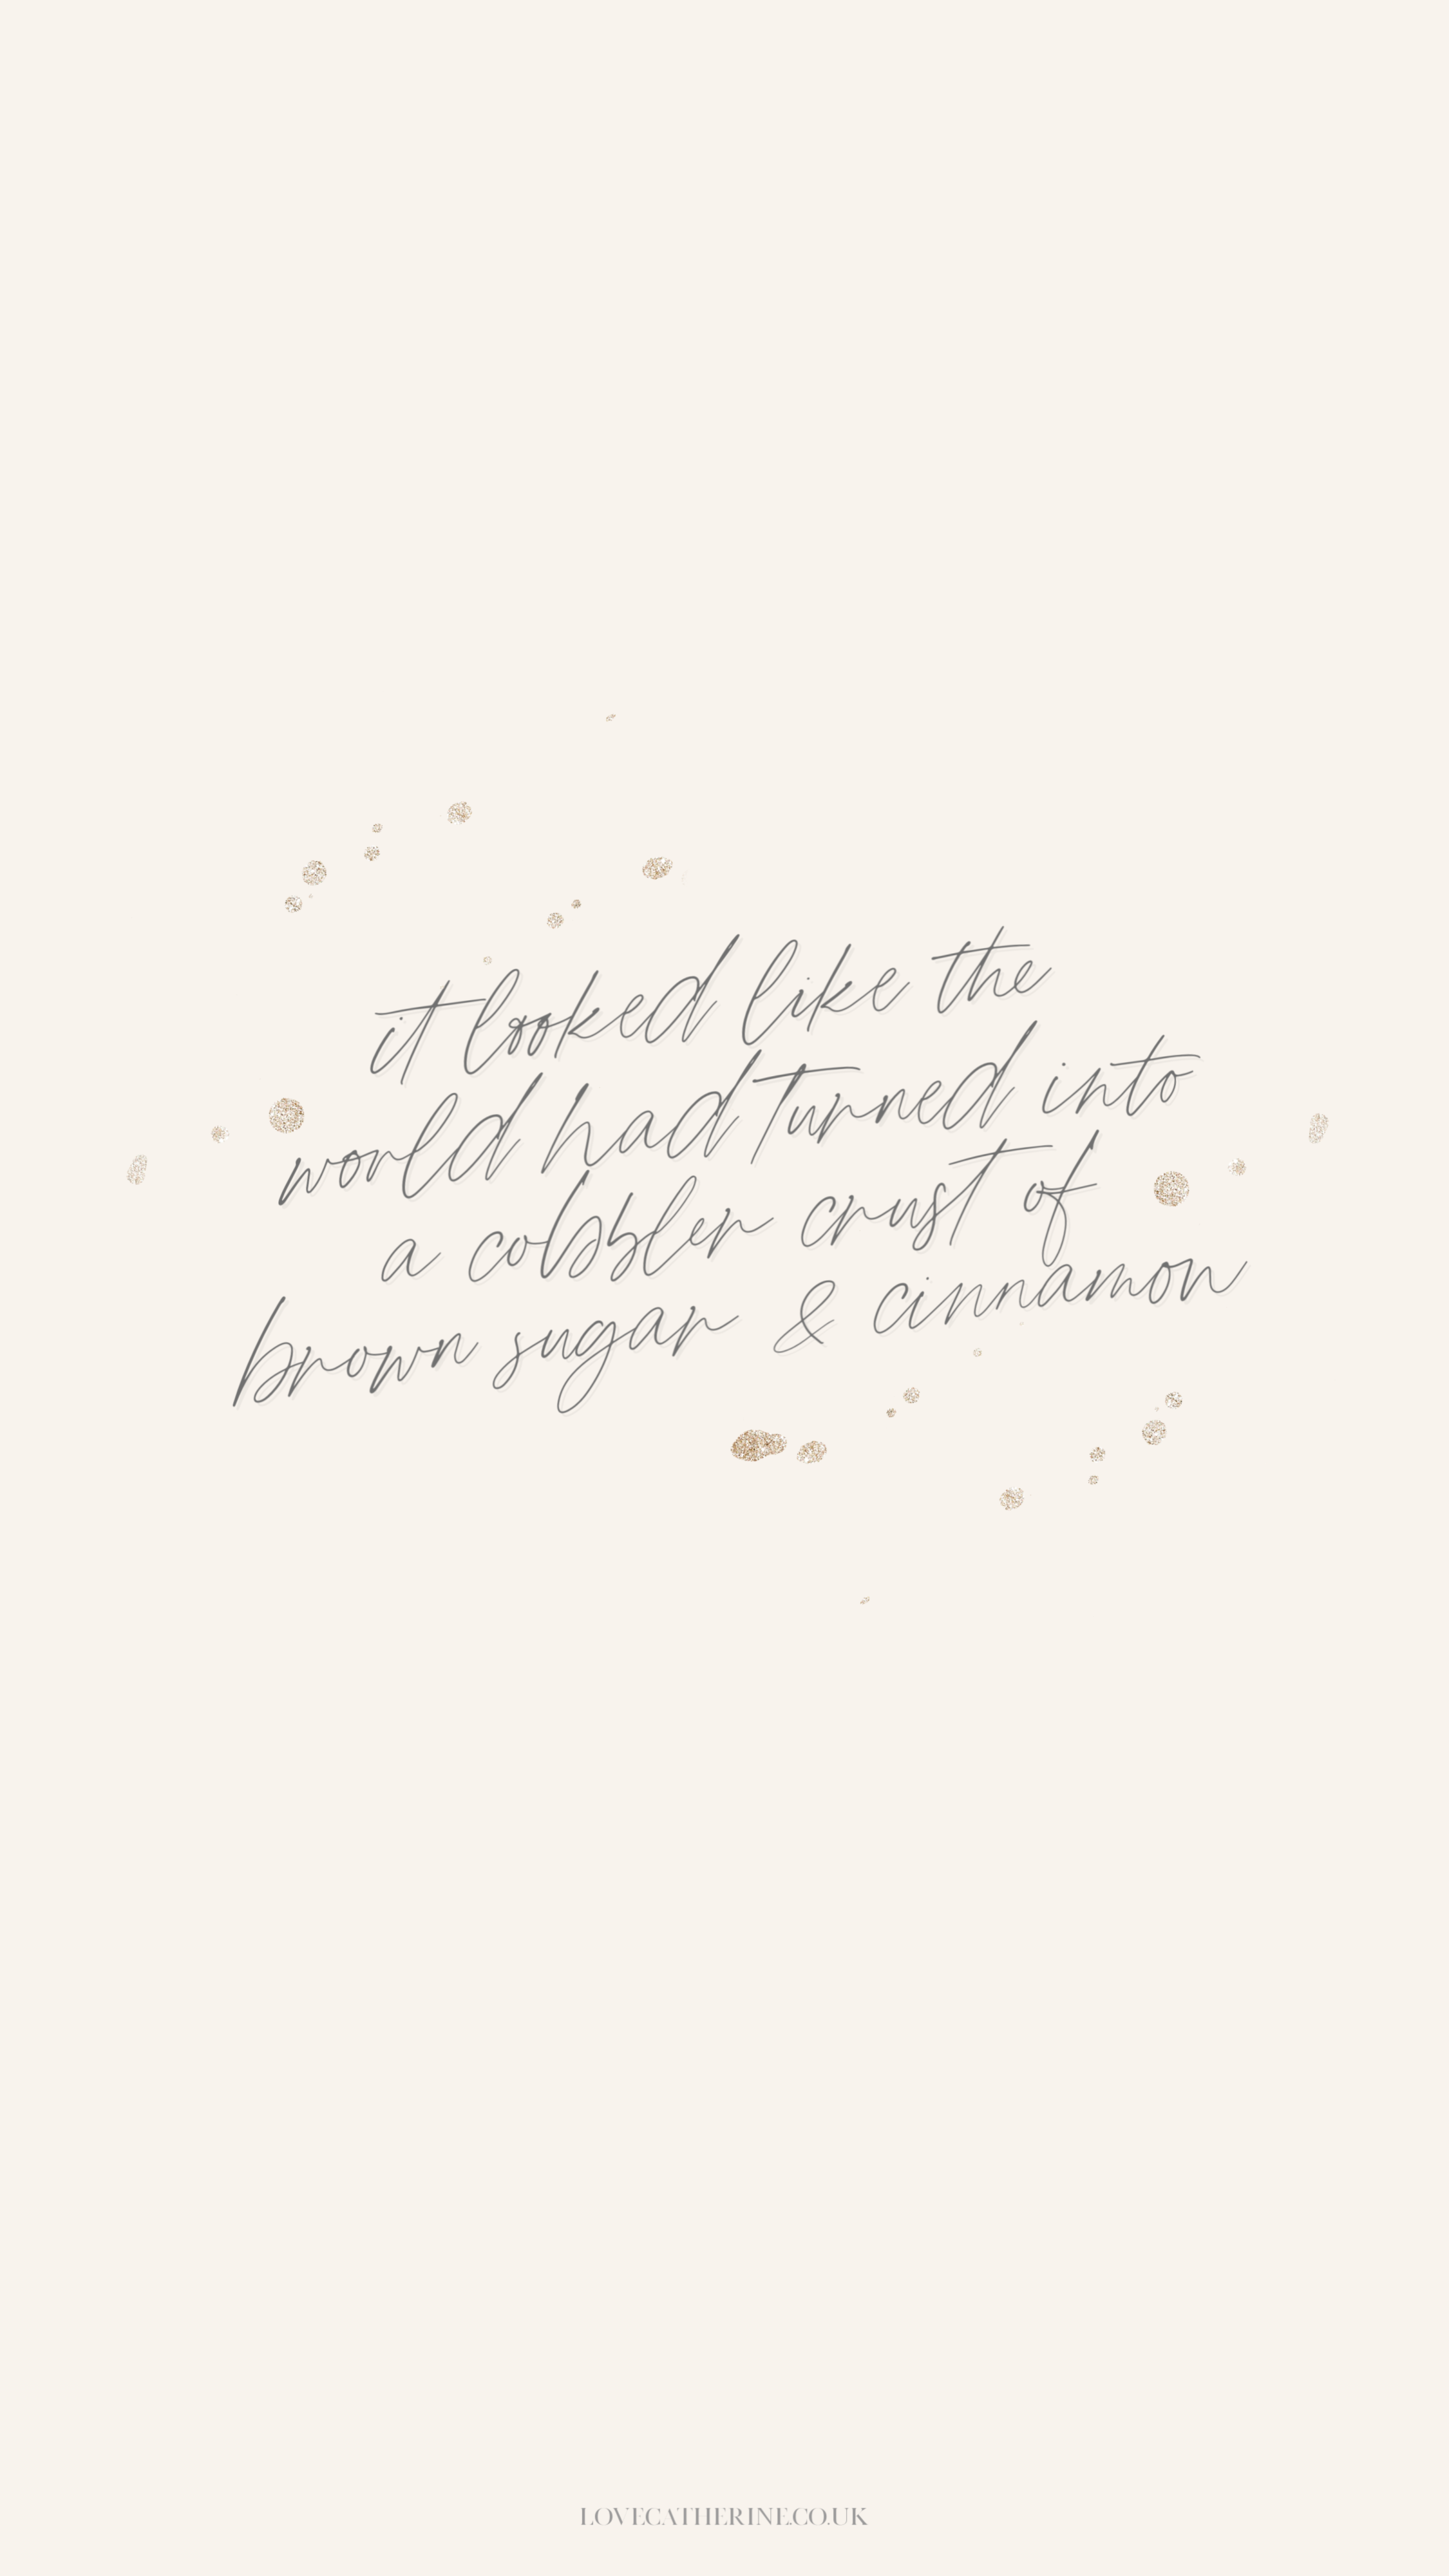 it looked like the
world had turned into
a cobbler crust of
brown sugar & cinnamon
LOVECATHERINE.CO.UK